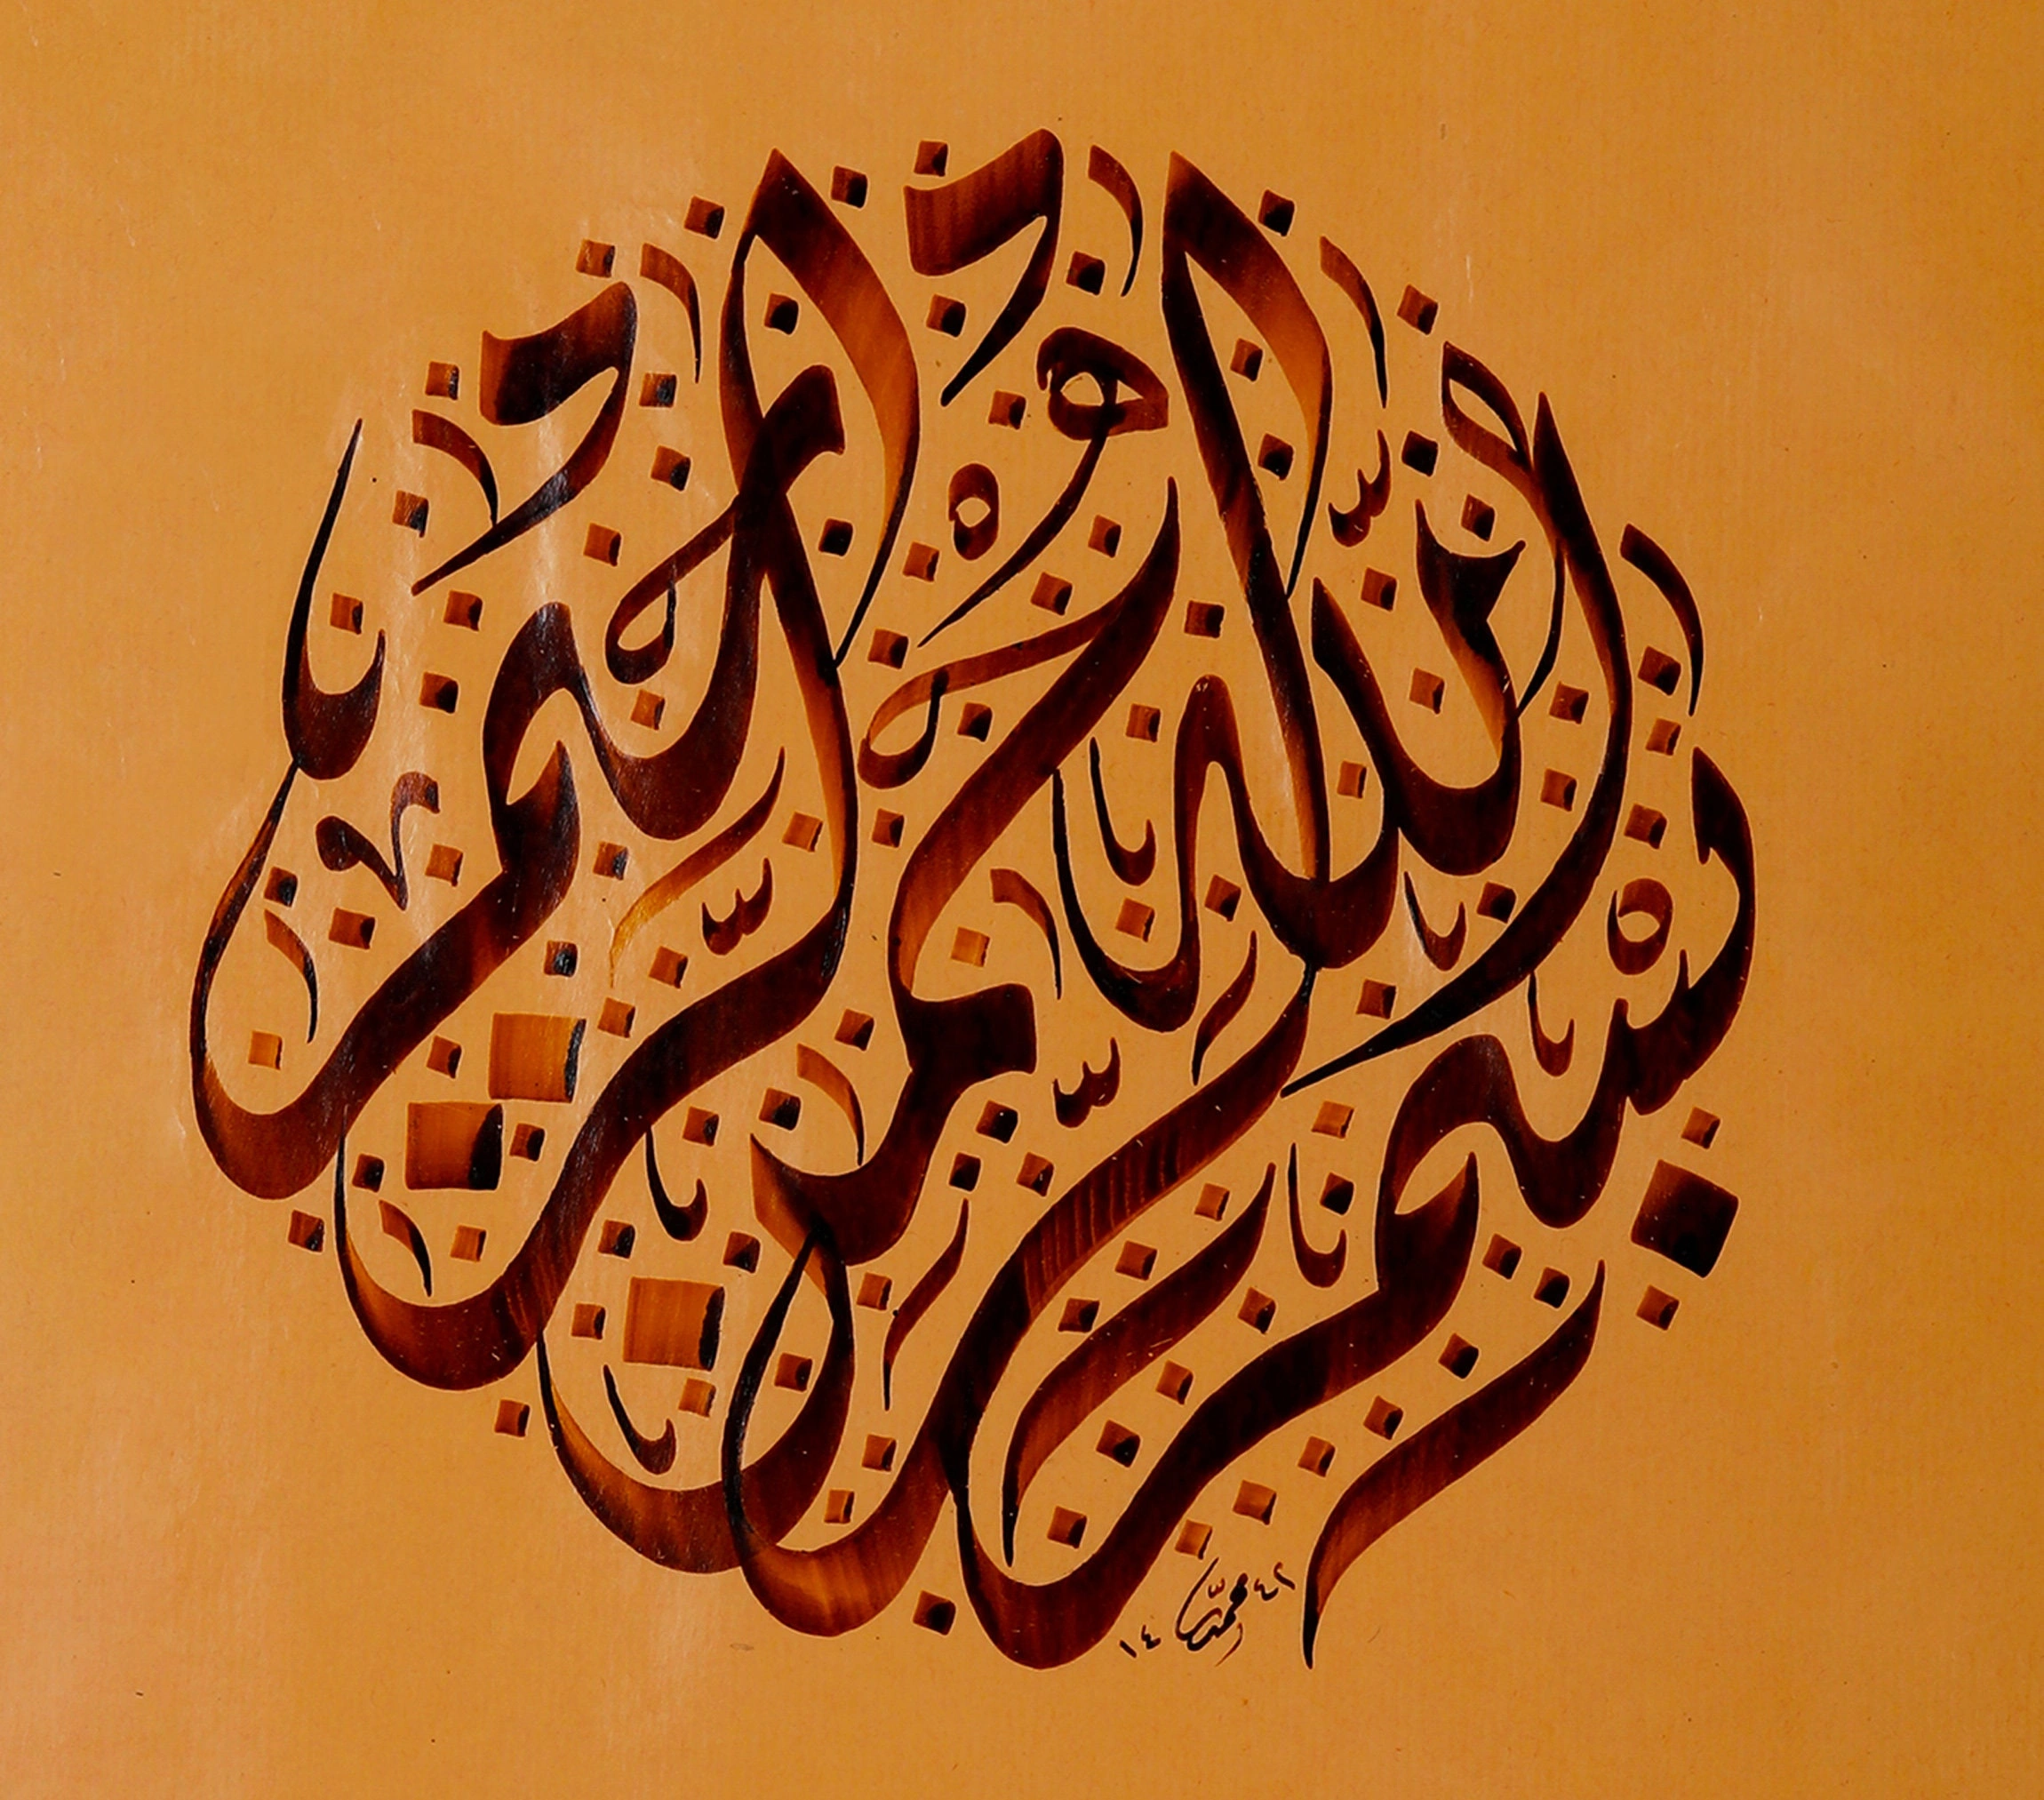 بسم الله الرحمن الرحيم
١٤ ٤٢